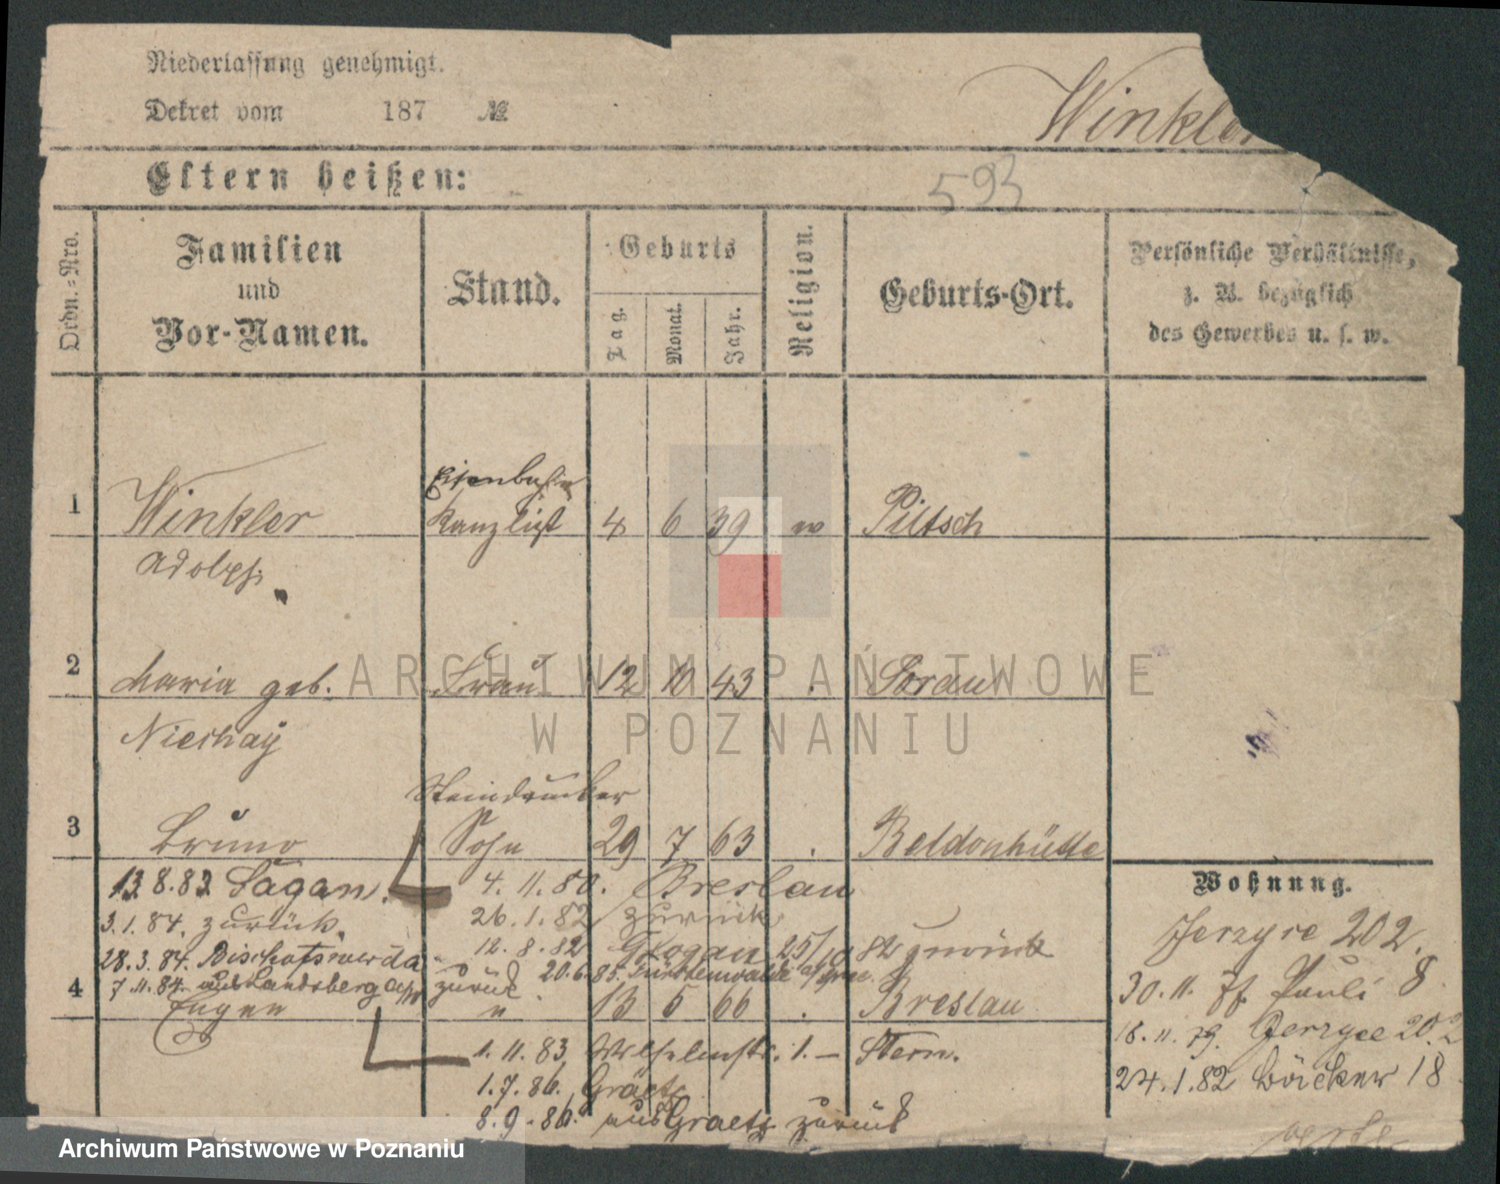 Niederlassung genehmigt.
Dekret vom 187 №
Winkler
Eltern heißen:
593
Ordn.=Nro.
Familien
und
Vor-Namen.
Stand.
Geburts
Tag.
Monat.
Jahr.
Religion.
Geburts-Ort.
Persönliche Verhältnisse,
z. B. bezüglich
des Gewerbes u. s. w.
Eisenbahn
1 Winkler Kanzlist 4 6 39 Piltsch
Adolph
2 Maria geb. Frau 12 10 43 Sorau
Nieshay
Steindrucker
3 Bruno Sohn 29 7 63 . Beldonhütte
13.8.83 Sagan. 4. 11. 80. Breslau
3.1.84. zurück. 26. 1. 82 zurück
28.3.84. Bischofswerda 12. 8. 82 Glogau 25/10 82 zurück
7.11.84. aus Landsberg a/W zurück 20.6.85. Fürstenwalde a/Spree.
4 Eugen " 13 5 66 . Breslau
1. 11. 83 Wilhelmstr. 1. — Stern.
1.7.86. Grätz
8.9.86. aus Graetz zurück
Wohnung.
Jerzyce 202.
30.11.77. Pauli 8.
18.11.79. Jerzyce 202
24.1.82 Böcker 18
ARCHIWUM PAŃSTWOWE
W POZNANIU
Archiwum Państwowe w Poznaniu